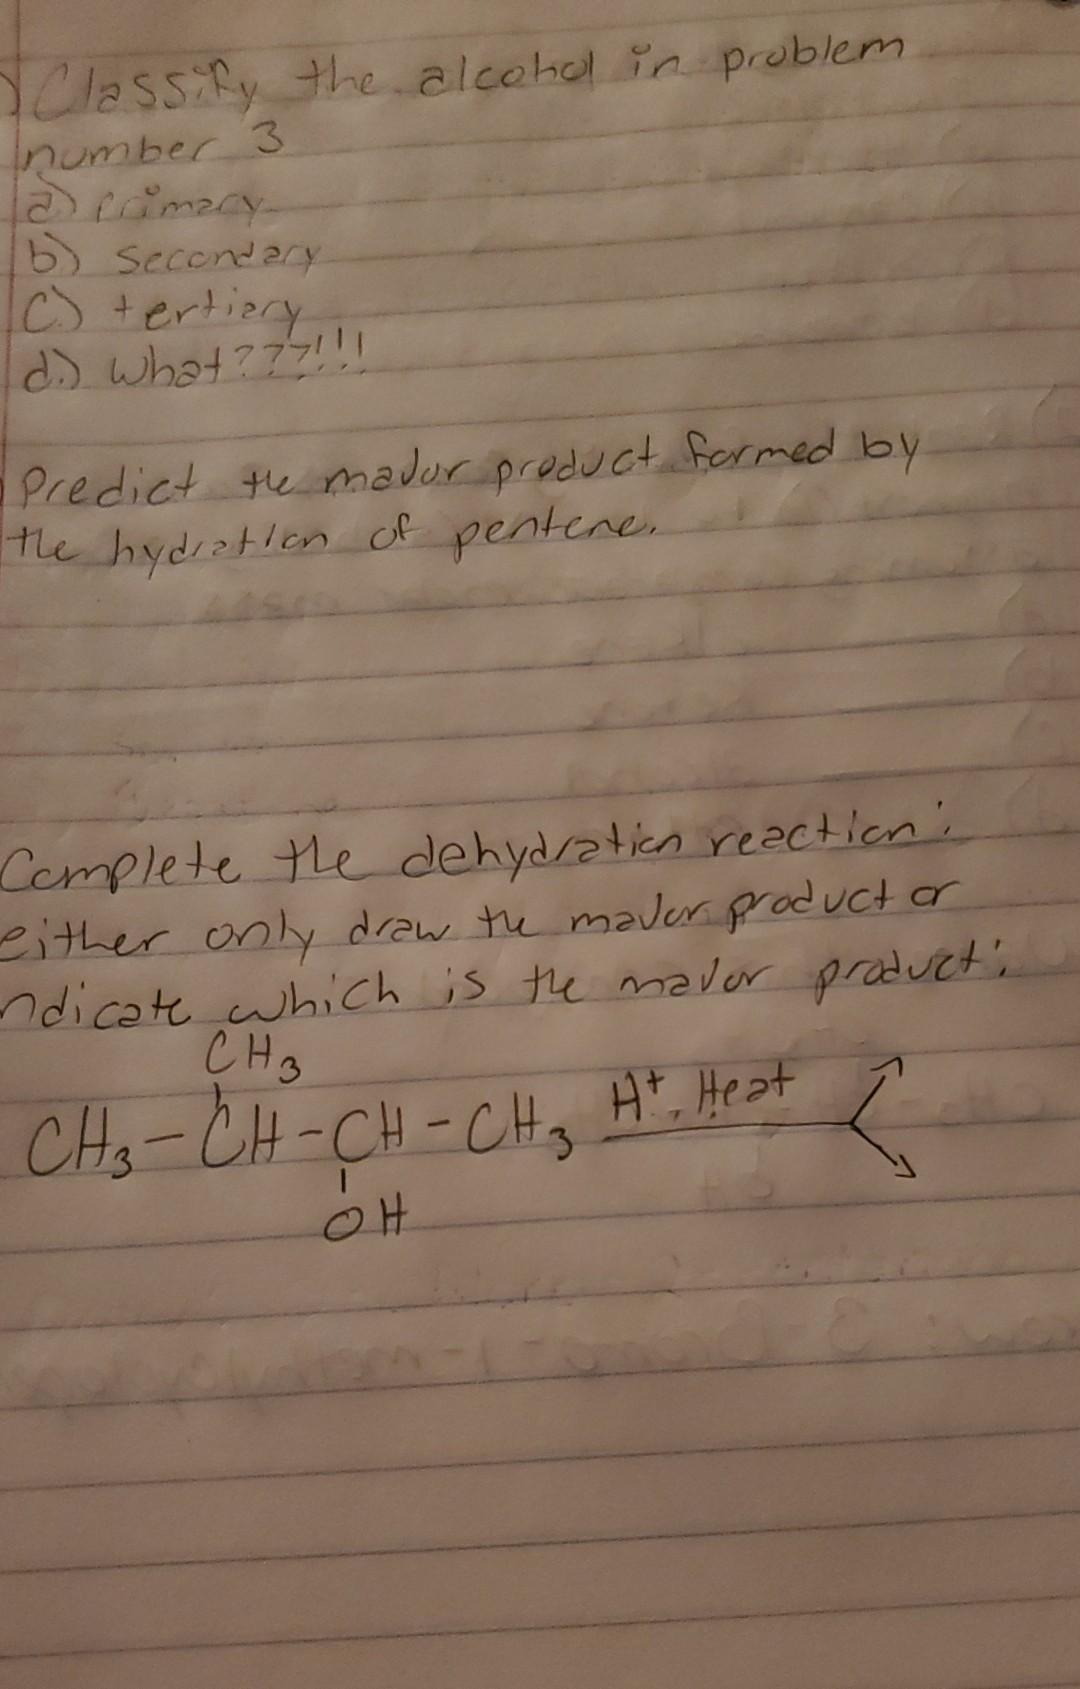 Classify the alcohol in problem
number 3
a) primary
b) secondary
c.) tertiary
d.) What???!!!
Predict the mador product formed by
the hydration of pentene.
Complete the dehydration reaction;
either only draw the mador product or
ndicate which is the mador product;
CH3
CH3-CH-CH-CH3 H+, Heat
OH